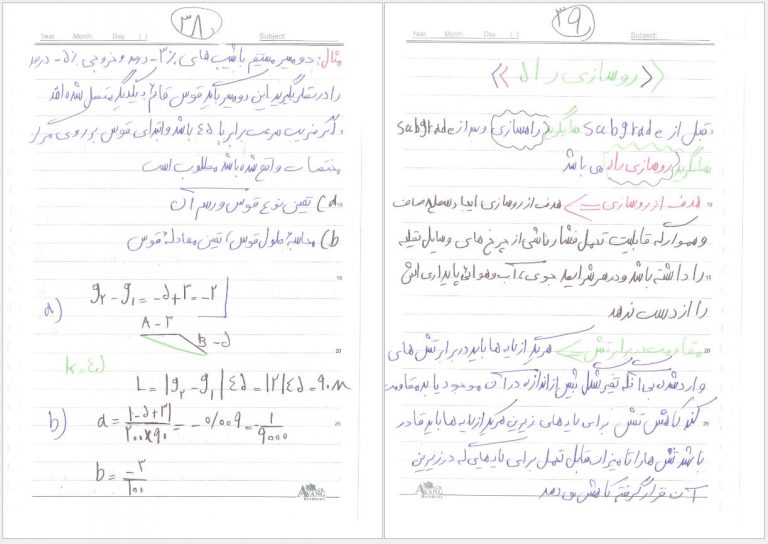 ۳۸
Year. Month. Day. ( ) Subject:
مثال: دو مسیر مستقیم با شیب های ۳٪- درصد و خروجی ۵٪- درصد
را در نظر بگیرید این دو مسیر با یک قوس قائم به یکدیگر متصل شده اند
اگر ضریب سرعت برابر با ۴۵ باشد و ابتدای قوس بر روی مرکز
مختصات واقع شده باشد مطلوب است
a) تعیین نوع قوس و رسم آن
b) محاسبه طول قوس، تعیین معادله قوس
a) g₂ - g₁ = -۵+۳ = -۲
A -۳
B -۵
k=۴۵
L = |g₂ - g₁| ۴۵ = |۲| ۴۵ = ۹۰ m
b) a = |-۵+۳| / ۲۰۰×۹۰ = -۰/۰۰۹ = -۱/۹۰۰۰
b = -۳/۱۰۰
AVANG
۳۹
Year. Month. Day. ( ) Subject:
<< روسازی راه >>
قبل از subgrade را میگوییم راهسازی و بعد از subgrade
را میگویند روسازی راه می باشد
هدف از روسازی => هدف از روسازی ایجاد سطح صاف
و هموار که قابلیت تحمل فشار ناشی از چرخ های وسایل نقلیه
را داشته باشد و در هر شرایط جوی، آب و هوایی پایداری اش
را از دست ندهد
مقاومت در برابر تنش => هر یک از لایه ها باید در برابر تنش های
وارد شده بی آنکه تغییر شکل بیش از اندازه در آن بوجود بیاید مقاومت
کند کاهش تنش برای لایه های زیرین هر یک از لایه ها باید قادر
باشد تنش ها را تا میزان قابل تحمل برای لایه هایی که در زیرین
آن قرار گرفته کاهش می دهد